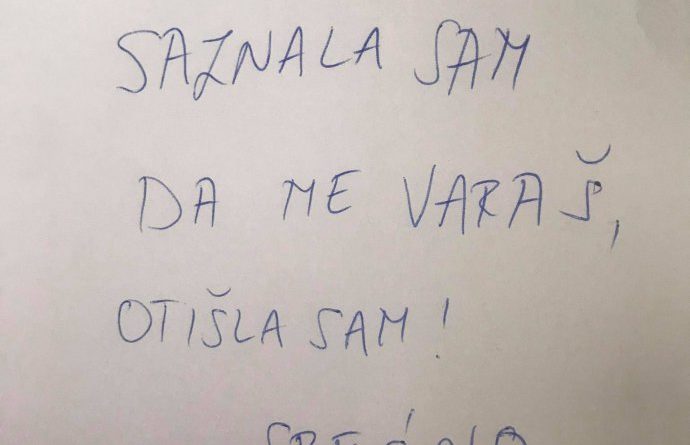 SAZNALA SAM
DA ME VARAŠ,
OTIŠLA SAM!